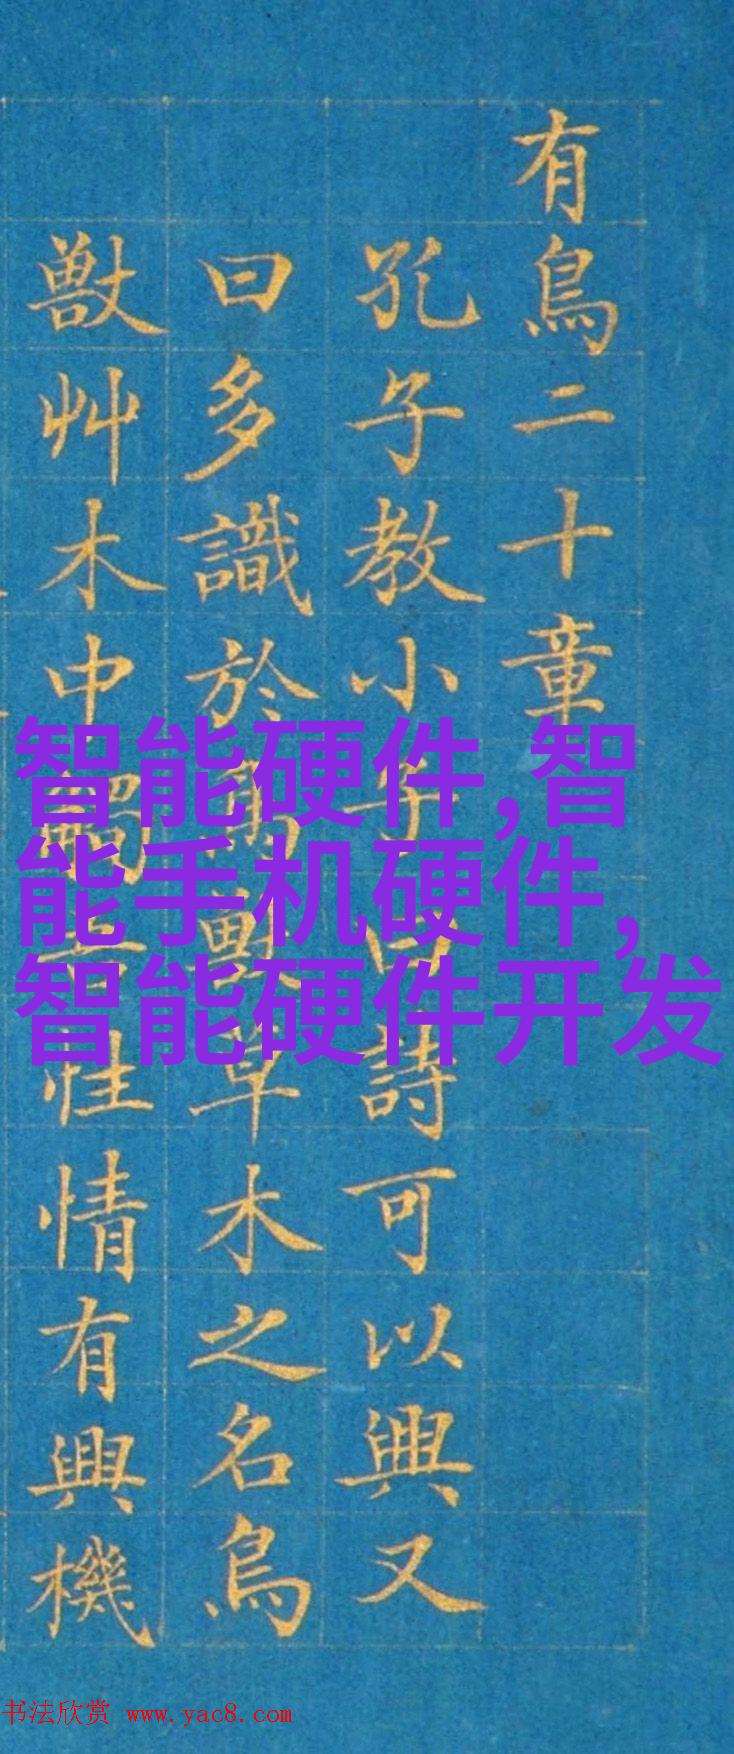 有鳥二十章
孔子教小子曰詩可以興又
曰多識於鳥獸草木之名鳥
獸艸木中性情有興機
智能硬件,智
能手机硬件,
智能硬件开发
书法欣赏 www.yac8.com